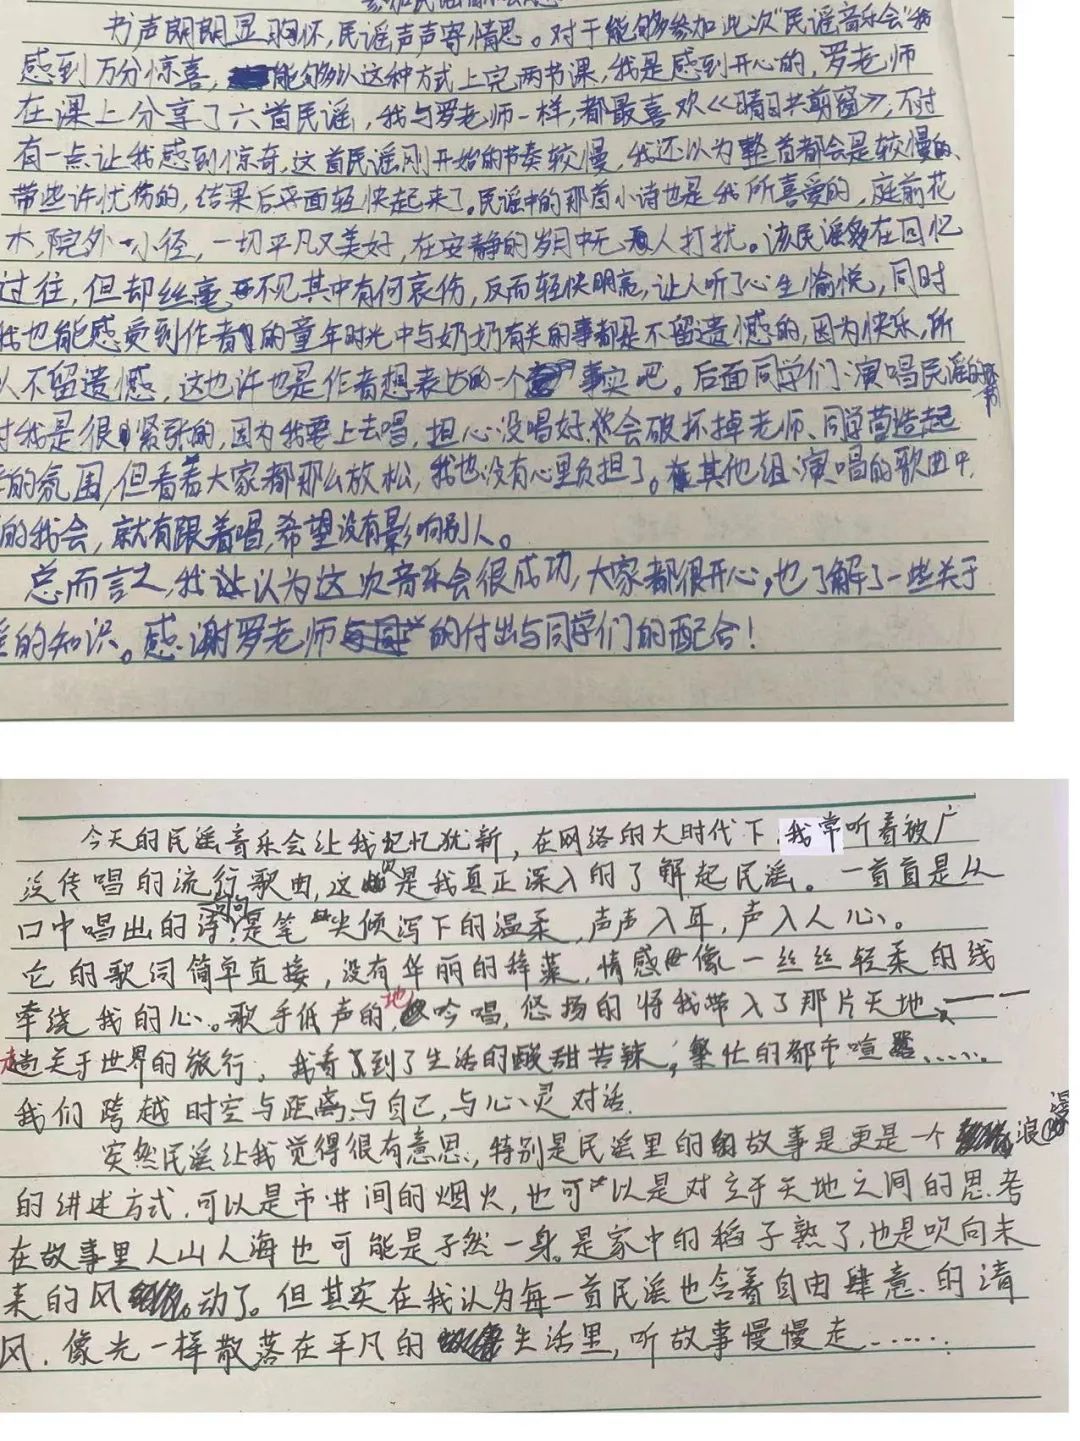 参加民谣音乐会感
书声朗朗显胸怀,民谣声声寄情思。对于能够参加此次"民谣音乐会"我
感到万分惊喜,能够以这种方式上完两节课,我是感到开心的,罗老师
在课上分享了六首民谣,我与罗老师一样,都最喜欢《晴日共剪窗》,不过
有一点让我感到惊奇,这首民谣刚开始的节奏较慢,我还以为整首都会是较慢的、
带些许忧伤的,结果后面轻快起来了。民谣中的那首小诗也是我所喜爱的,庭前花
木,院外小径,一切平凡又美好,在安静的岁月中无人打扰。该民谣在回忆
过往,但却丝毫不见其中有何哀伤,反而轻快明亮,让人听了心生愉悦,同时
我也能感受到作者的童年时光中与奶奶有关的事都是不留遗憾的,因为快乐,所
以不留遗憾,这也许也是作者想表达的一个事实吧。后面同学们演唱民谣的
时我是很紧张的,因为我要上去唱,担心没唱好会破坏掉老师、同学营造起
的氛围,但看着大家都那么放松,我也没有心里负担了。在其他组演唱的歌曲中,
的我会,就有跟着唱,希望没有影响别人。
总而言之,我认为这次音乐会很成功,大家都很开心,也了解了一些关于
的知识。感谢罗老师的付出与同学们的配合!
今天的民谣音乐会让我记忆犹新,在网络的大时代下,我常听着被广
泛传唱的流行歌曲,这次是我真正深入的了解起民谣。一首首是从
口中唱出的诗,句句是笔尖倾泻下的温柔,声声入耳,声入人心。
它的歌词简单直接,没有华丽的辞藻,情感像一丝丝轻柔的线
牵绕我的心。歌手低声地吟唱,悠扬的将我带入了那片天地——
趟关于世界的旅行,我看到了生活的酸甜苦辣,繁忙的都市喧嚣……
我们跨越时空与距离,与自己,与心灵对话.
突然民谣让我觉得很有意思,特别是民谣里的故事是更是一个浪漫
的讲述方式.可以是市井间的烟火,也可以是对立于天地之间的思考
在故事里人山人海也可能是孑然一身。是家中的稻子熟了,也是吹向未
来的风动了。但其实在我认为每一首民谣也含着自由肆意.的清
风.像光一样散落在平凡的生活里,听故事慢慢走……